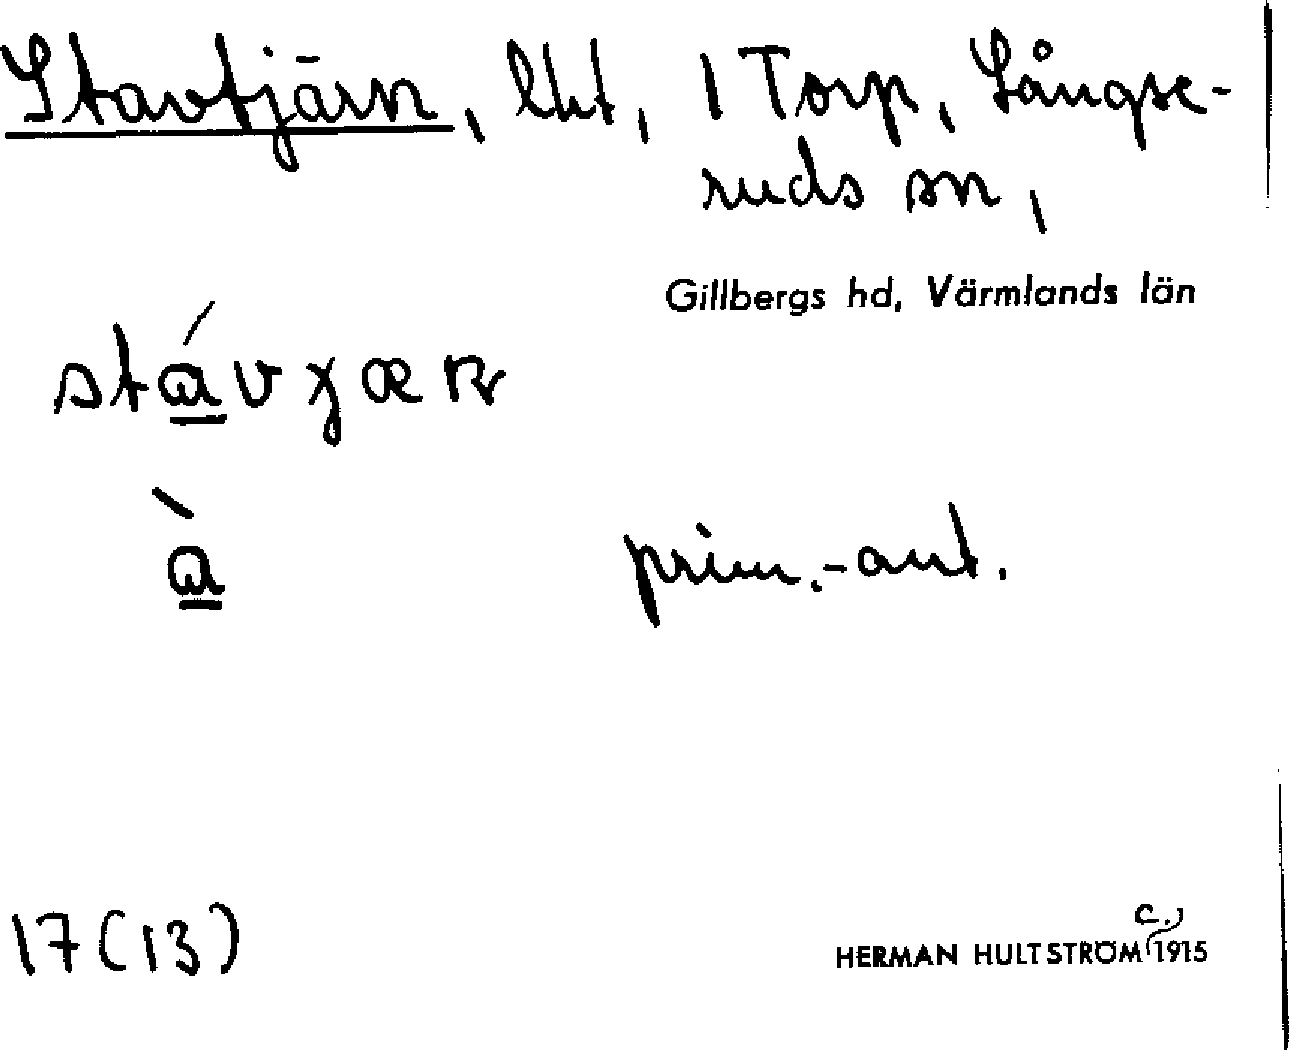 Stavtjärn, lht, 1 Torp, Långse-
ruds sn,
Gillbergs hd, Värmlands län
stávγærn
à prim.-ant.
17(13)
c.,
HERMAN HULTSTRÖM 1915